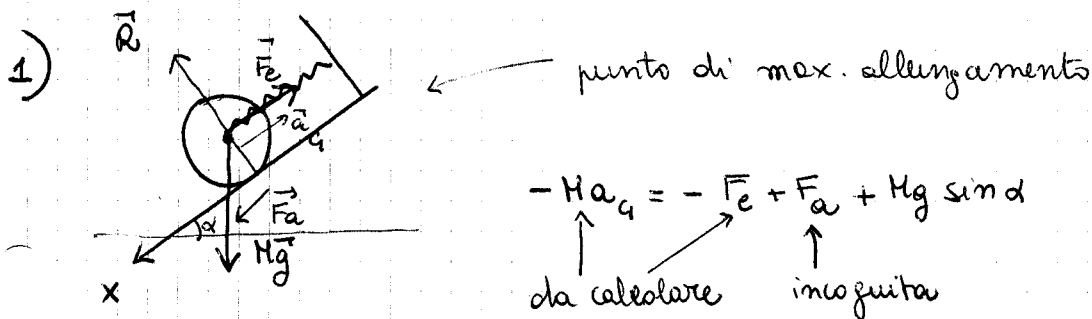 1)
R⃗
F⃗e
a⃗G
punto di max. allungamento
F⃗a
α
Mg⃗
x
- MaG = - Fe + Fa + Mg sin α
da calcolare incognita